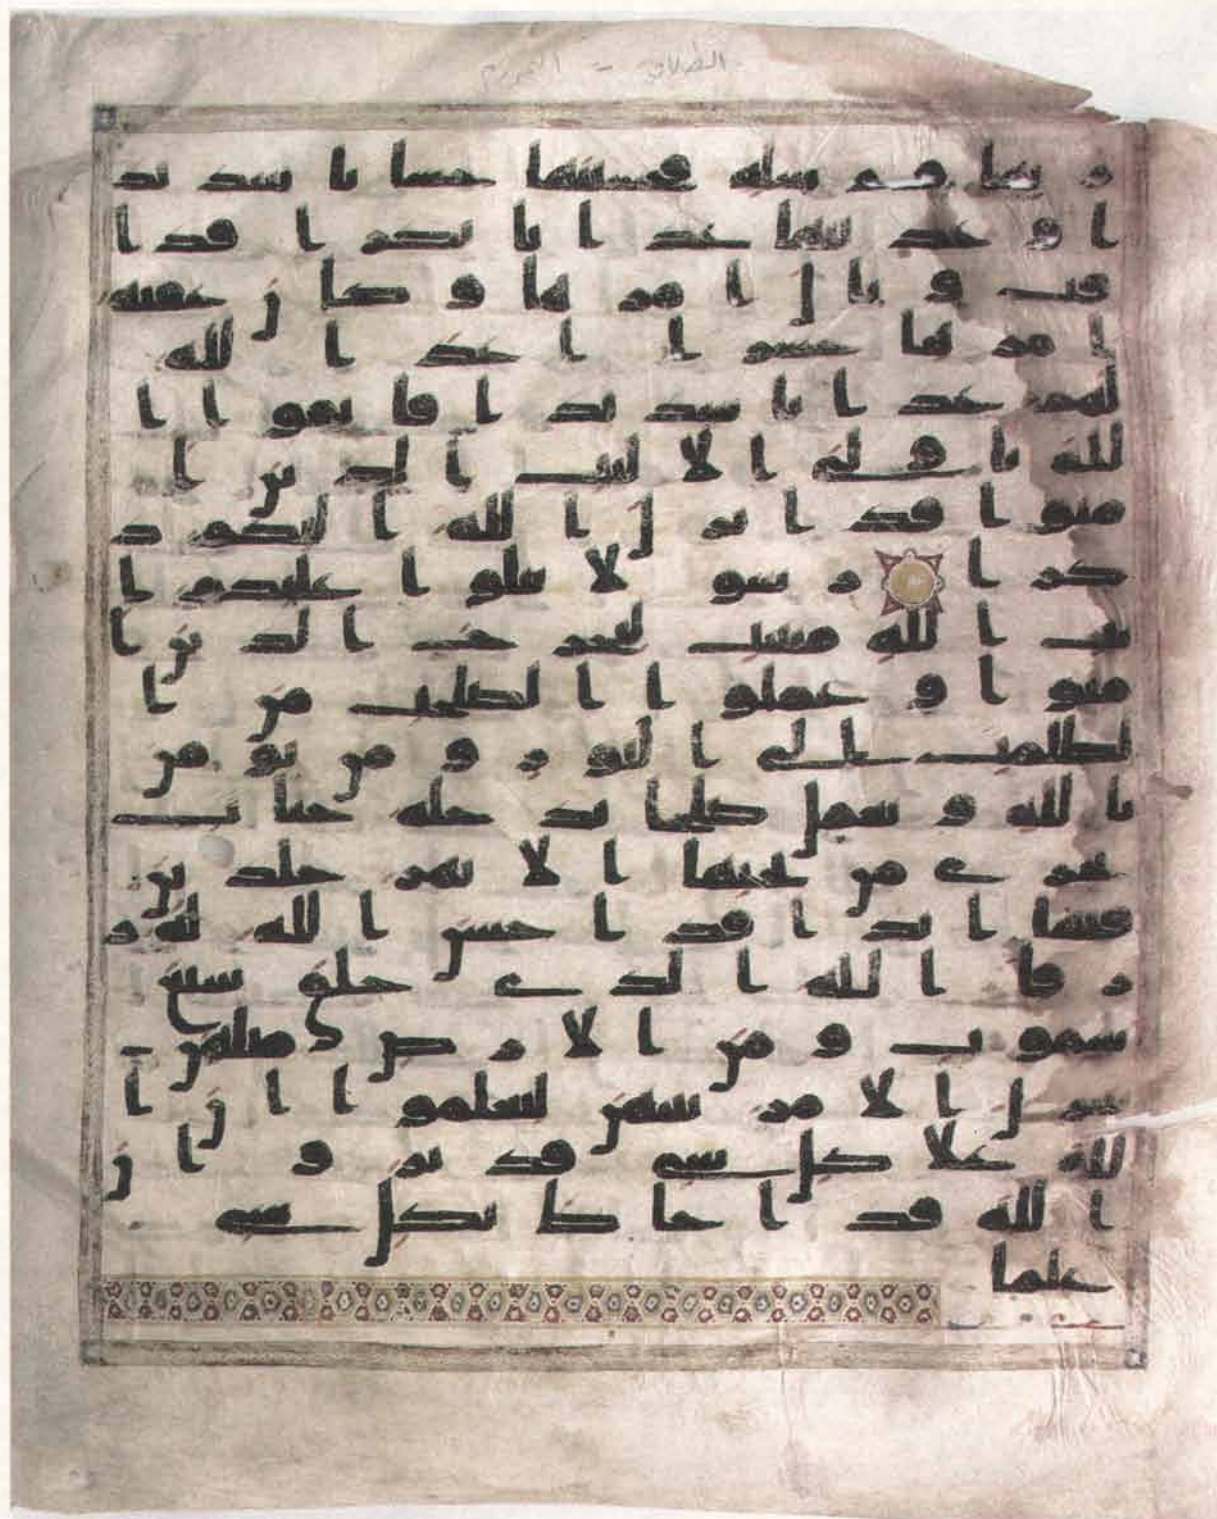 الطلاق - التحريم
ربها و رسله فحسبنها حسابا شديد
ا و عذبنها عذابا نكرا فذا
قت و بال امرها و كان عقبه
امرها خسرا اعد الله
لهم عذابا شديدا فاتقوا ا
لله يا ولي الالبب الذين ا
منوا قد انزل الله اليكم ذ
كرا رسولا يتلوا عليكم ا
يت الله مبينت ليخرج الذين ا
منوا و عملوا الصلحت من ا
لظلمت الي النور و من يومن
بالله و يعمل صلحا يدخله جنات
تجري من تحتها الانهر خلدين
فيها ابدا قد احسن الله له ر
زقا الله الذي خلق سبع
سموت و من الارض مثلهن يـ
تنزل الامر بينهن لتعلموا ان ا
لله علا كل شي قدير و ان
الله قد احاط بكل شي
علما